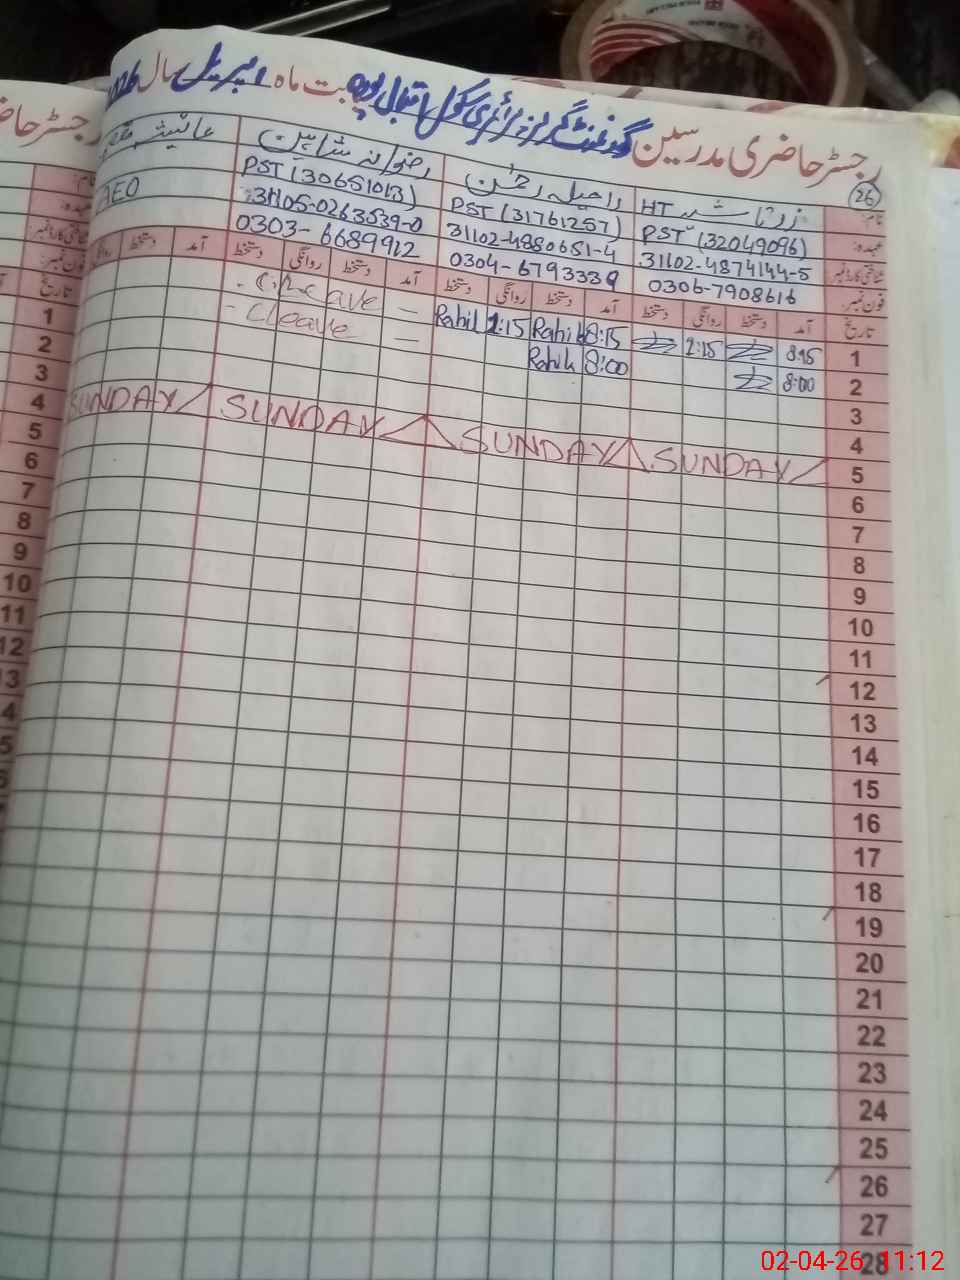 رجسٹر حاضری مدرسین گورنمنٹ گرلز پرائمری سکول اقبال پورہ بابت ماہ اپریل سال
26
نام: HT راحیلہ رضوانہ شاہین
عہدہ: PST (32049096) PST (31761257) PST (30651013) AEO
شناختی کارڈ نمبر: 31102-4874144-5 31102-4880651-4 31105-0263539-0
فون نمبر: 0306-7908616 0304-6793339 0303-6689912
تاریخ آمد دستخط روانگی دستخط آمد دستخط روانگی دستخط آمد دستخط روانگی دستخط آمد دستخط
1 8:15 1:15 8:15 Rahil 1:15 Rahil - C.leave -
2 8:00 8:00 Rahil - C leave -
3
4
5 SUNDAY SUNDAY SUNDAY SUNDAY
6
7
8
9
10
11
12
13
14
15
16
17
18
19
20
21
22
23
24
25
26
27
28
رجسٹر حاضری
نام:
عہدہ:
شناختی کارڈ نمبر:
فون نمبر:
تاریخ
1
2
3
4
5
6
7
8
9
10
11
12
02-04-26 11:12